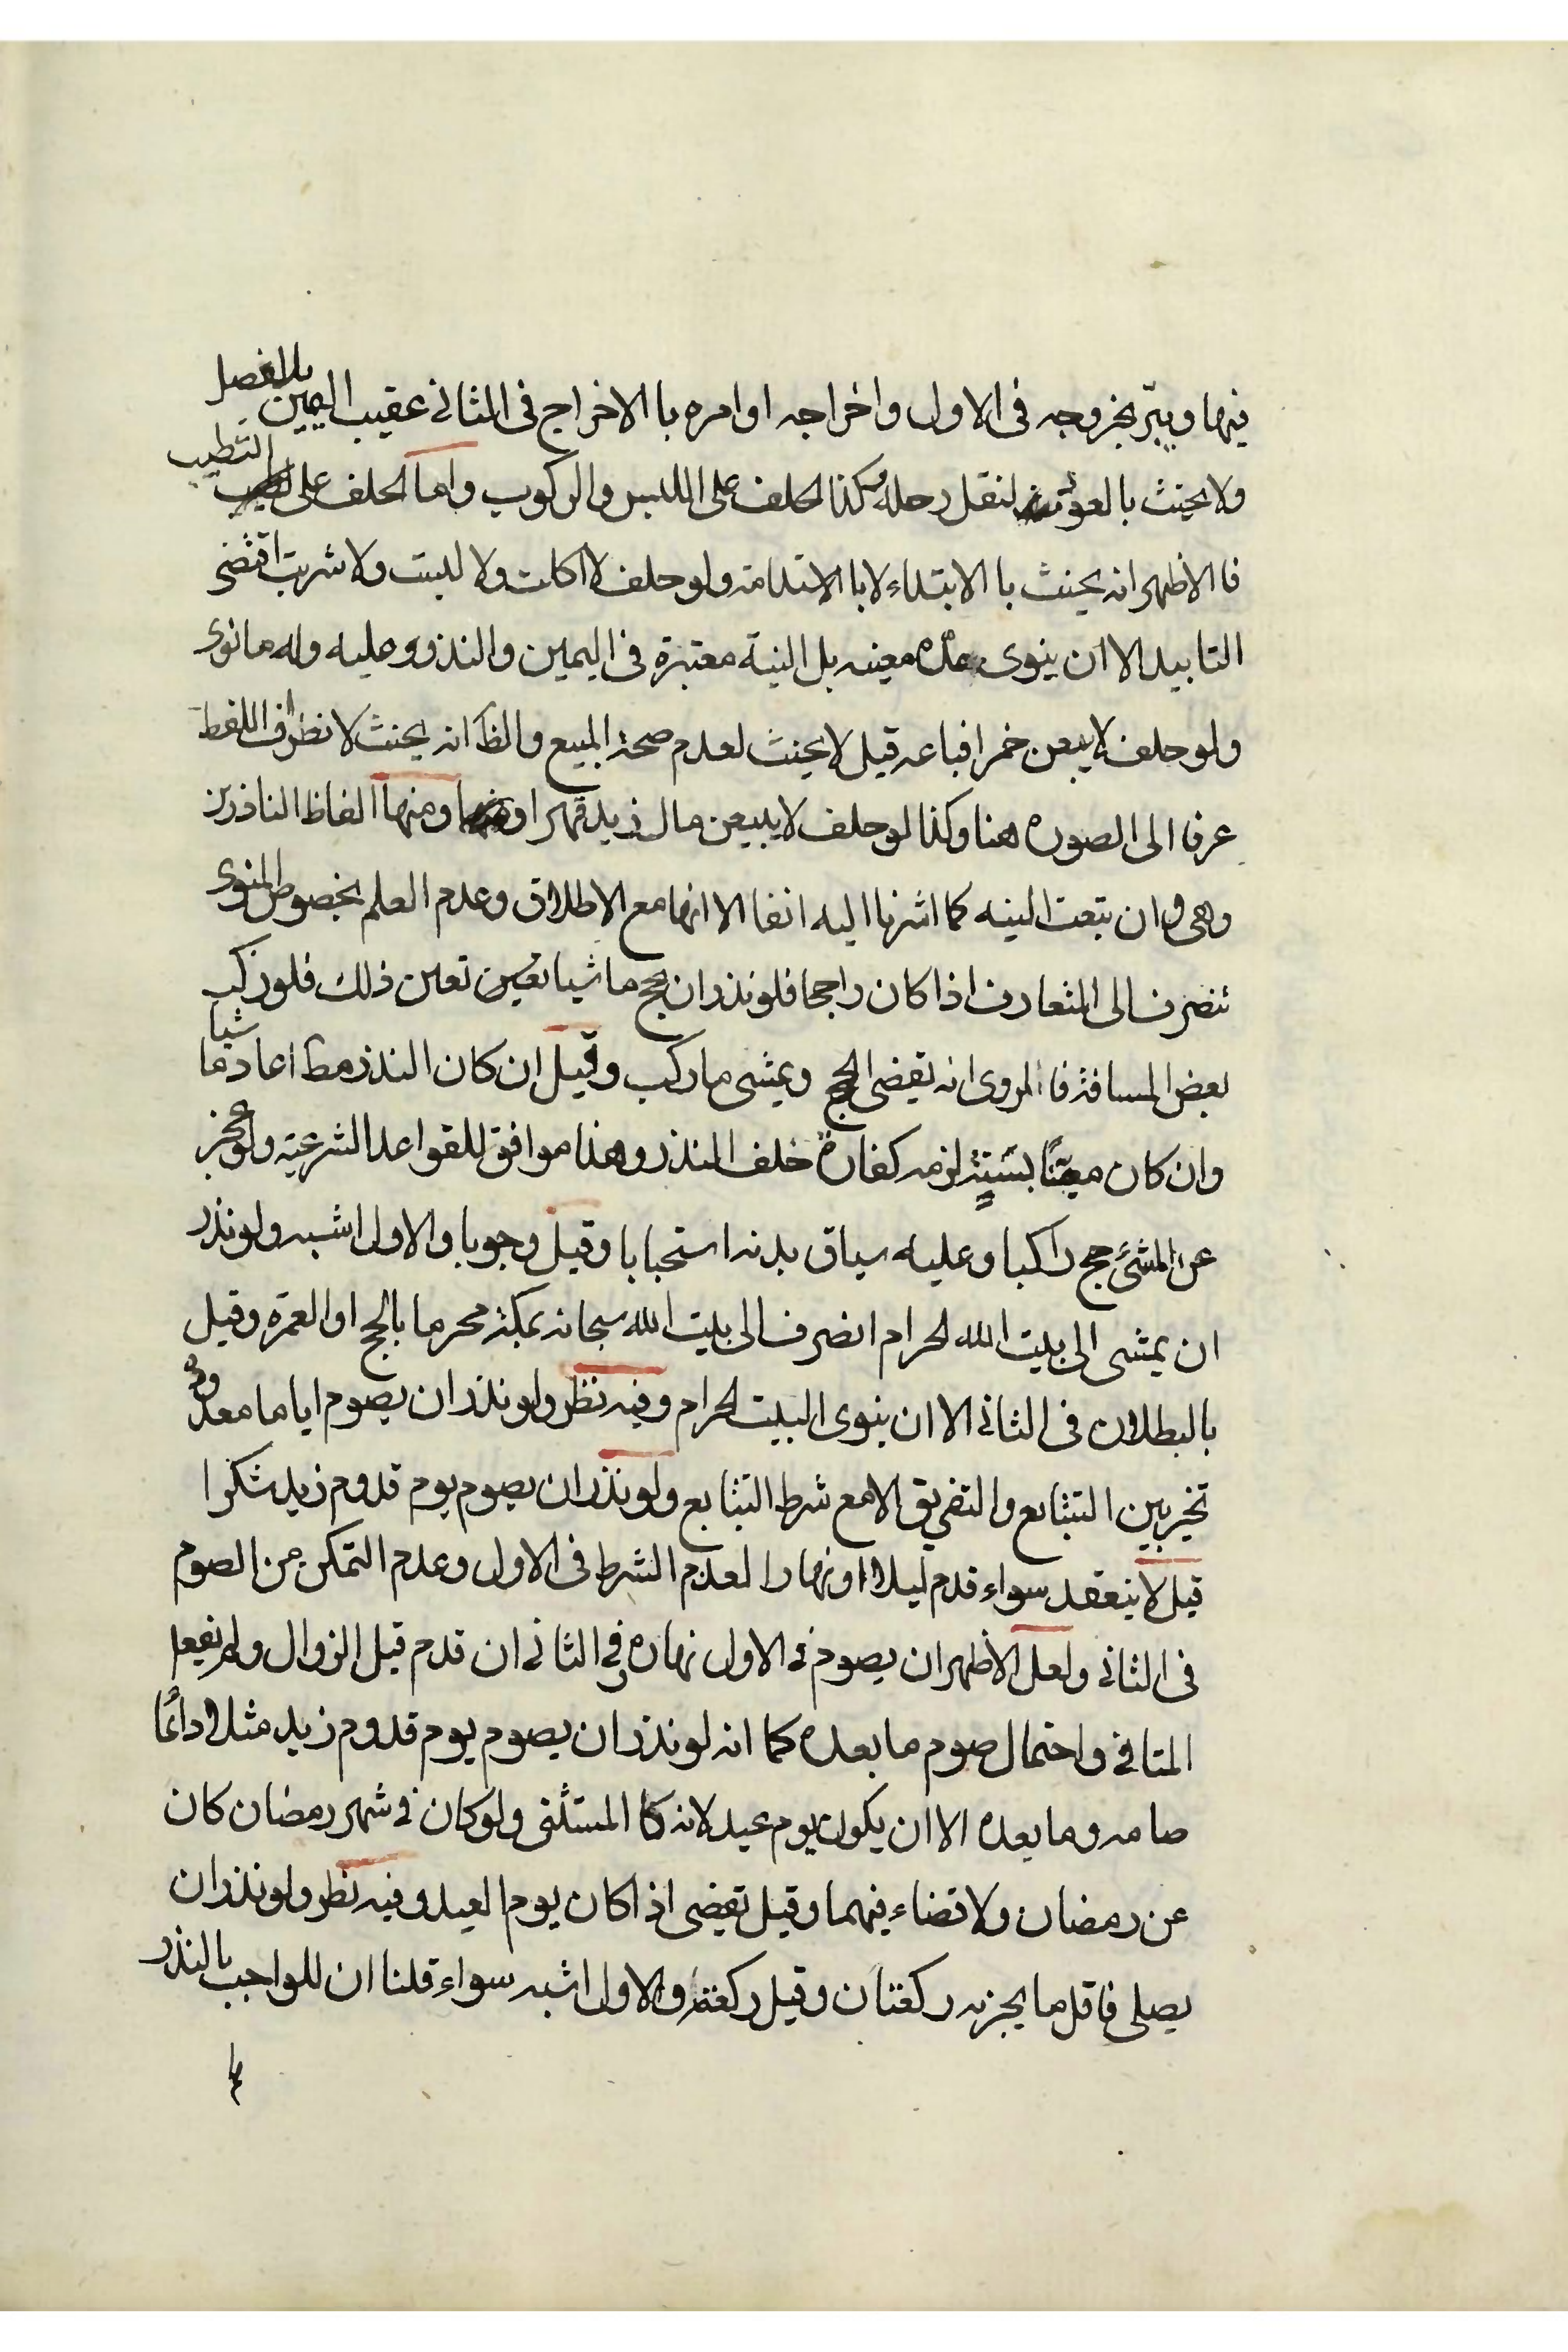 فيها ويبرّ بخروجه فى الاول واخراجه او امره با الاخراج فى الثانى عقيب اليمين بلا فصل
ولا يحنث بالعود لنقل رحله وكذا الحلف على اللبس والركوب واما الحلف على التطيب
فا الاظهر انه يحنث با الابتداء لا با الاستدامة ولو حلف لا اكلت ولا لبست ولا شربت اقتضى
التابيد الا ان ينوى مدة معينه بل النية معتبرة فى اليمين والنذر وعليه وله ما نوى
ولو حلف لا يبيعن خمرا فباعه قيل لا يحنث لعدم صحة البيع والظ انه يحنث لانصراف اللفظ
عرفا الى الصوره هنا وكذا لو حلف لا يبيعن مال زيد قهرا ومنها الفاظ الناذرين
وهى وان تبعت النيه كما اشرنا اليه انفا الا انها مع الاطلاق وعدم العلم بخصوص المنوى
تنصرف الى المتعارف اذا كان راجحا فلو نذر ان يحج ماشيا تعين ذلك فلو ركب
بعض المسافة فا المروى انه يقضى الحج ويمشى ما ركب وقيل ان كان النذر مط اعاد ماشيا
وان كان معينًا بسنة لزمه كفارة خلف النذر وهذا موافق للقواعد الشرعية ولو عجز
عن المشئ حج راكبا وعليه سياق بدنه استحبابا وقيل وجوبا والاول اشبه ولو نذر
ان يمشى الى بيت الله الحرام انصرف الى بيت الله سبحانه بمكة محرما بالحج او العمره وقيل
بالبطلان فى الثانى الا ان ينوى البيت الحرام وفيه نظر ولو نذر ان يصوم اياما معدوده
تخير بين التتابع والتفريق الا مع شرط التتابع ولو نذر ان يصوم يوم قدوم زيد شكرا
قيل لا ينعقد سواء قدم ليلا او نهارا لعدم الشرط فى الاول وعدم التمكن من الصوم
فى الثانى ولعل الاظهر ان يصوم فى الاول نهاره وفى الثانى ان قدم قبل الزوال ولم يفعل
المنافى واحتمال صوم ما بعده كما انه لو نذر ان يصوم يوم قدوم زيد مثلا دائمًا
صامه وما بعده الا ان يكون يوم عيد لانه كا المستثنى ولو كان فى شهر رمضان كان
عن رمضان ولا قضاء فيهما وقيل يقضى اذا كان يوم العيد وفيه نظر ولو نذر ان
يصلى فاقل ما يجزيه ركعتان وقيل ركعة والاول اشبه سواء قلنا ان للواجب بالنذر